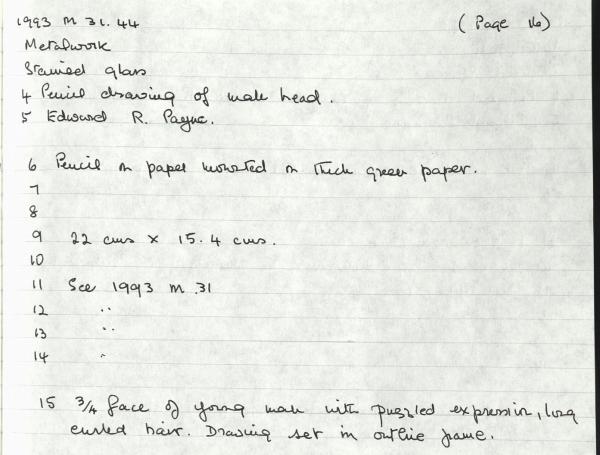 1993 M 31.44 (Page 16)
Metalwork
Stained glass
4 Pencil drawing of male head.
5 Edward R. Payne.
6 Pencil on paper mounted on thick green paper.
7
8
9 22 cms x 15.4 cms.
10
11 See 1993 M 31
12 "
13 "
14 "
15 3/4 face of young man with puzzled expression, long
curled hair. Drawing set in outline frame.